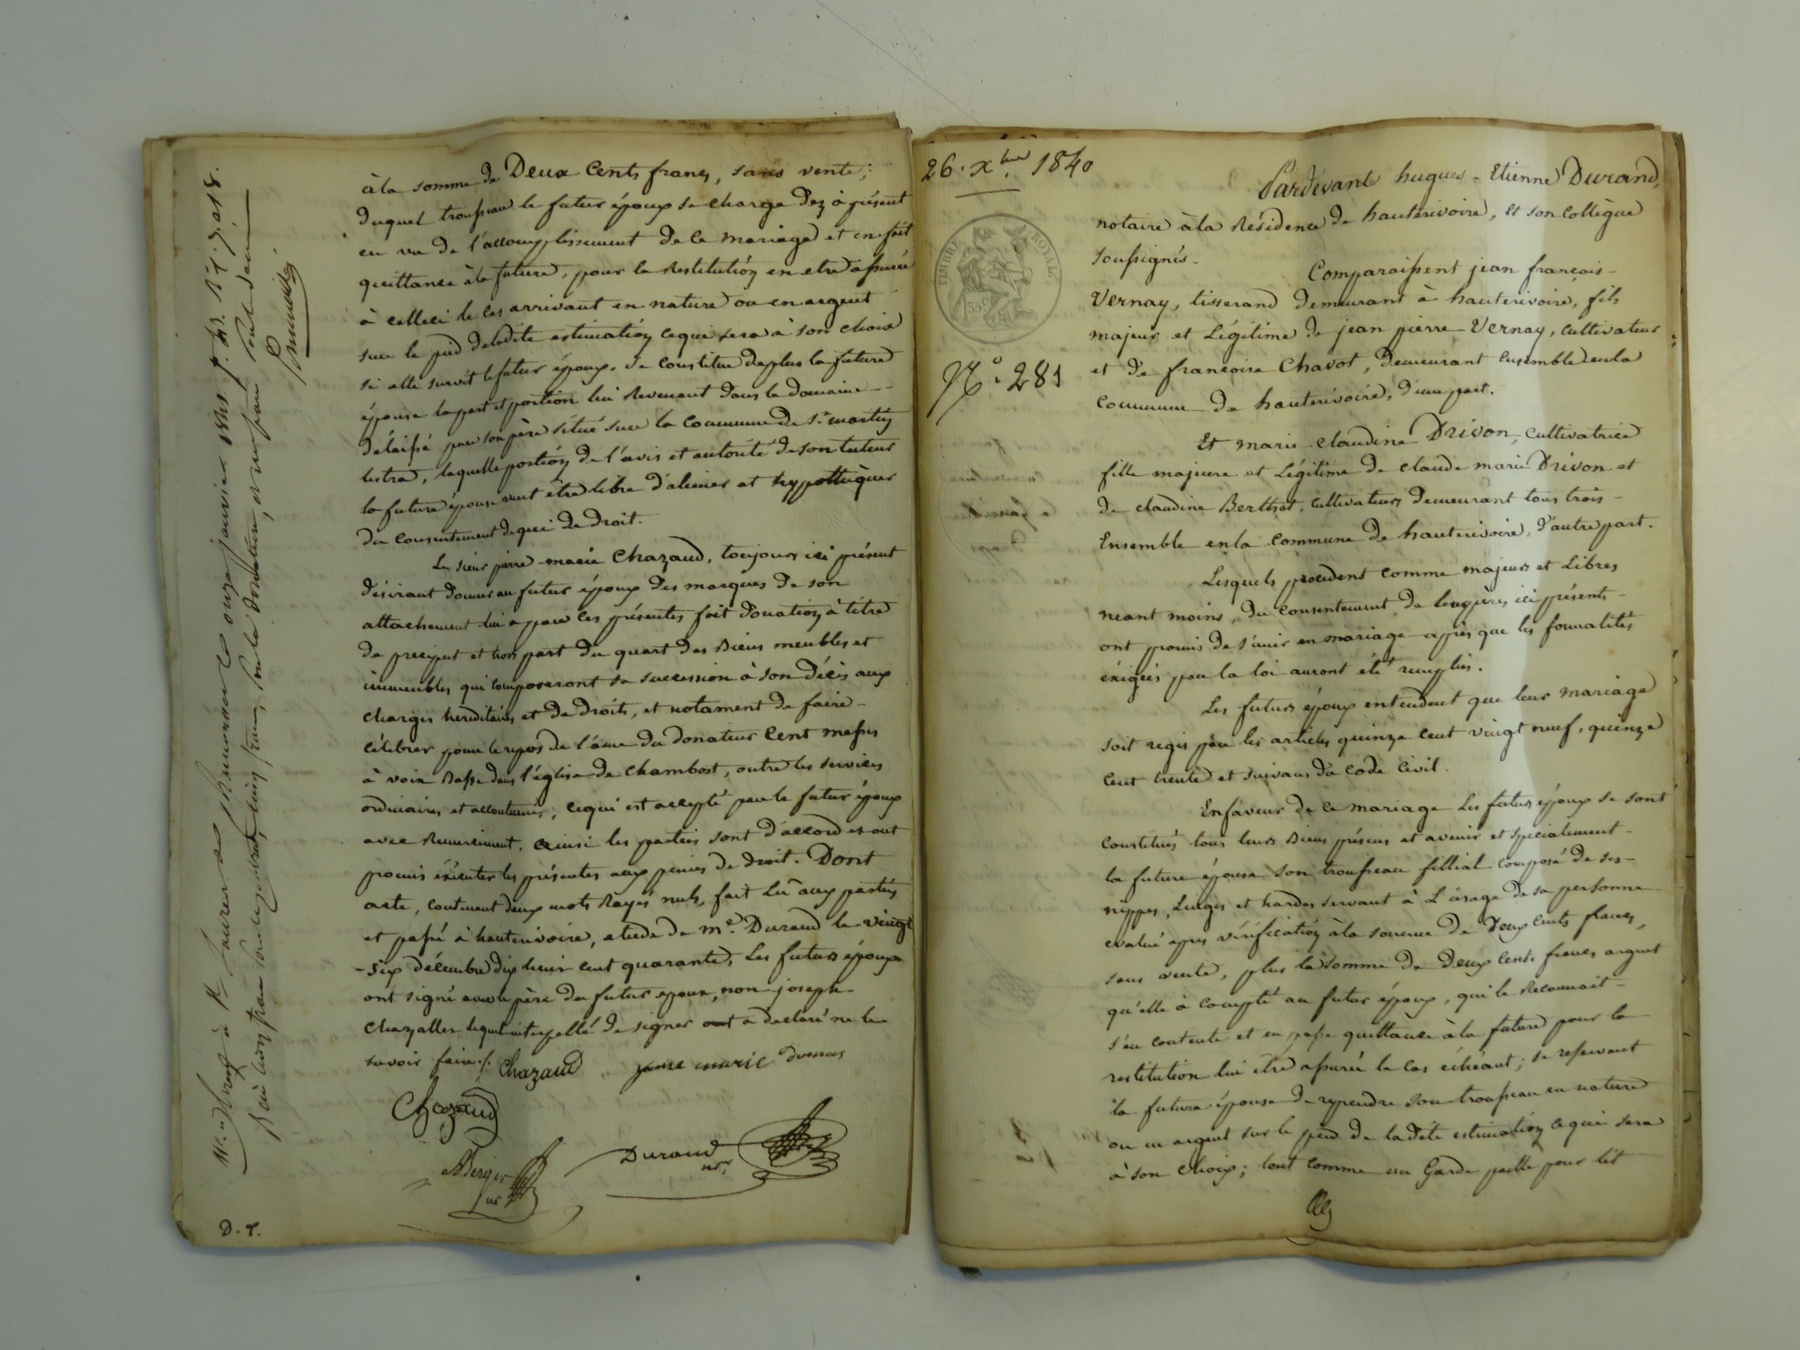 à la somme de Deux Cents francs, sans vente;
duquel trousseau le futur époux se charge dez à présent
en vu de l'accomplissement de ce mariage et en fait
quittance à la future, pour la restitution en etre assurée
à celleci le cas arrivant en nature ou en argent
sur le pied de ladite estimation ce qui sera à son choix
si elle survit le futur époux. Se constitue deplus la future
épouse la part et portion lui revenant dans le domaine
délaissé par son père situé sur la Commune de St martin
lestra, laquelle portion de l'avis et autorité de son tuteur
la future épouse veut être libre d'aliener et hypothéquer
du consentement de qui de droit.
Le sieur pierre-marie Chazaud, toujours ici présent
désirant donner au futur époux des marques de son
attachement lui a par ces présentes fait donation à titre
de preciput et hors part du quart des Biens meubles et
immeubles qui composeront sa succession à son décès aux
charges hereditaires et de droits, et notament de faire
célébrer pour le repos de l'âme du donateur Cent messes
à voix Basse dans l'église de Chambost, outre les services
ordinaires et accoutumés; ce qui est accepté par le futur époux
avec remerciment. Ainsi les parties sont d'accord et ont
promis éxécuter les présentes aux peines de droit. Dont
acte, contenant deux mots Rayés nuls, fait Lû aux parties
et passé à hauterivoire, etude de Me. Durand le vingt
-Six décembre dix huit cent quarante, Les futurs époux
ont signé avec le père du futur epoux, non joseph
Chazallet lequel interpellé de signer ont a declaré ne le
savoir faire./. Chazaud jeane marie dumas
Chazaud
Berger
nre
Durand
nre
D. T.
26. Xbre 1840
TIMBRE ROYAL
35c
No. 281
Pardevant hugues-Etienne Durand,
notaire à la Résidence de hauterivoire, et son Collègue
soussignés.
Comparaissent jean françois-
Vernay, tisserand demeurant à hauterivoire, fils
majeur et Légitime de jean pierre Vernay, cultivateur
et de françoise Chavot, demeurant ensemble en la
commune de hauterivoire, d'une part.
Et marie claudine Drivon, cultivatrice
fille majeure et Légitime de claude marie Drivon et
de claudine Berthet, cultivateurs demeurant tous trois
Ensemble en la Commune de hauterivoire, d'autre part.
Lesquels procedent comme majeurs et Libres
neant moins, du consentement de leurs pères ici présents
ont promis de s'unir en mariage après que les formalités
éxigées par la loi auront été remplies.
Les futurs époux entendent que leur mariage
soit regis par les articles quinze cent vingt neuf, quinze
cent trente et suivans du code Civil.
En faveur de ce mariage Les futurs époux se sont
Constitués tous leurs Biens présens et avenir et spécialement
la future épouse son trousseau fillial composé de ses
nippes, Linges et hardes servant à L'usage de sa personne
evalué après vérification à la somme de Deux Cents francs,
sans vente, plus la somme de deux cents francs argent
qu'elle à compté au futur époux, qui le Reconnait
s'en contente et en passe quittance à la future pour la
restitution lui etre assurée le cas échéant; se reservant
la future épouse de reprendre son trousseau en nature
ou en argent sur le pied de ladite estimation ce qui sera
à son choix; tout comme un Garde paille pour lit